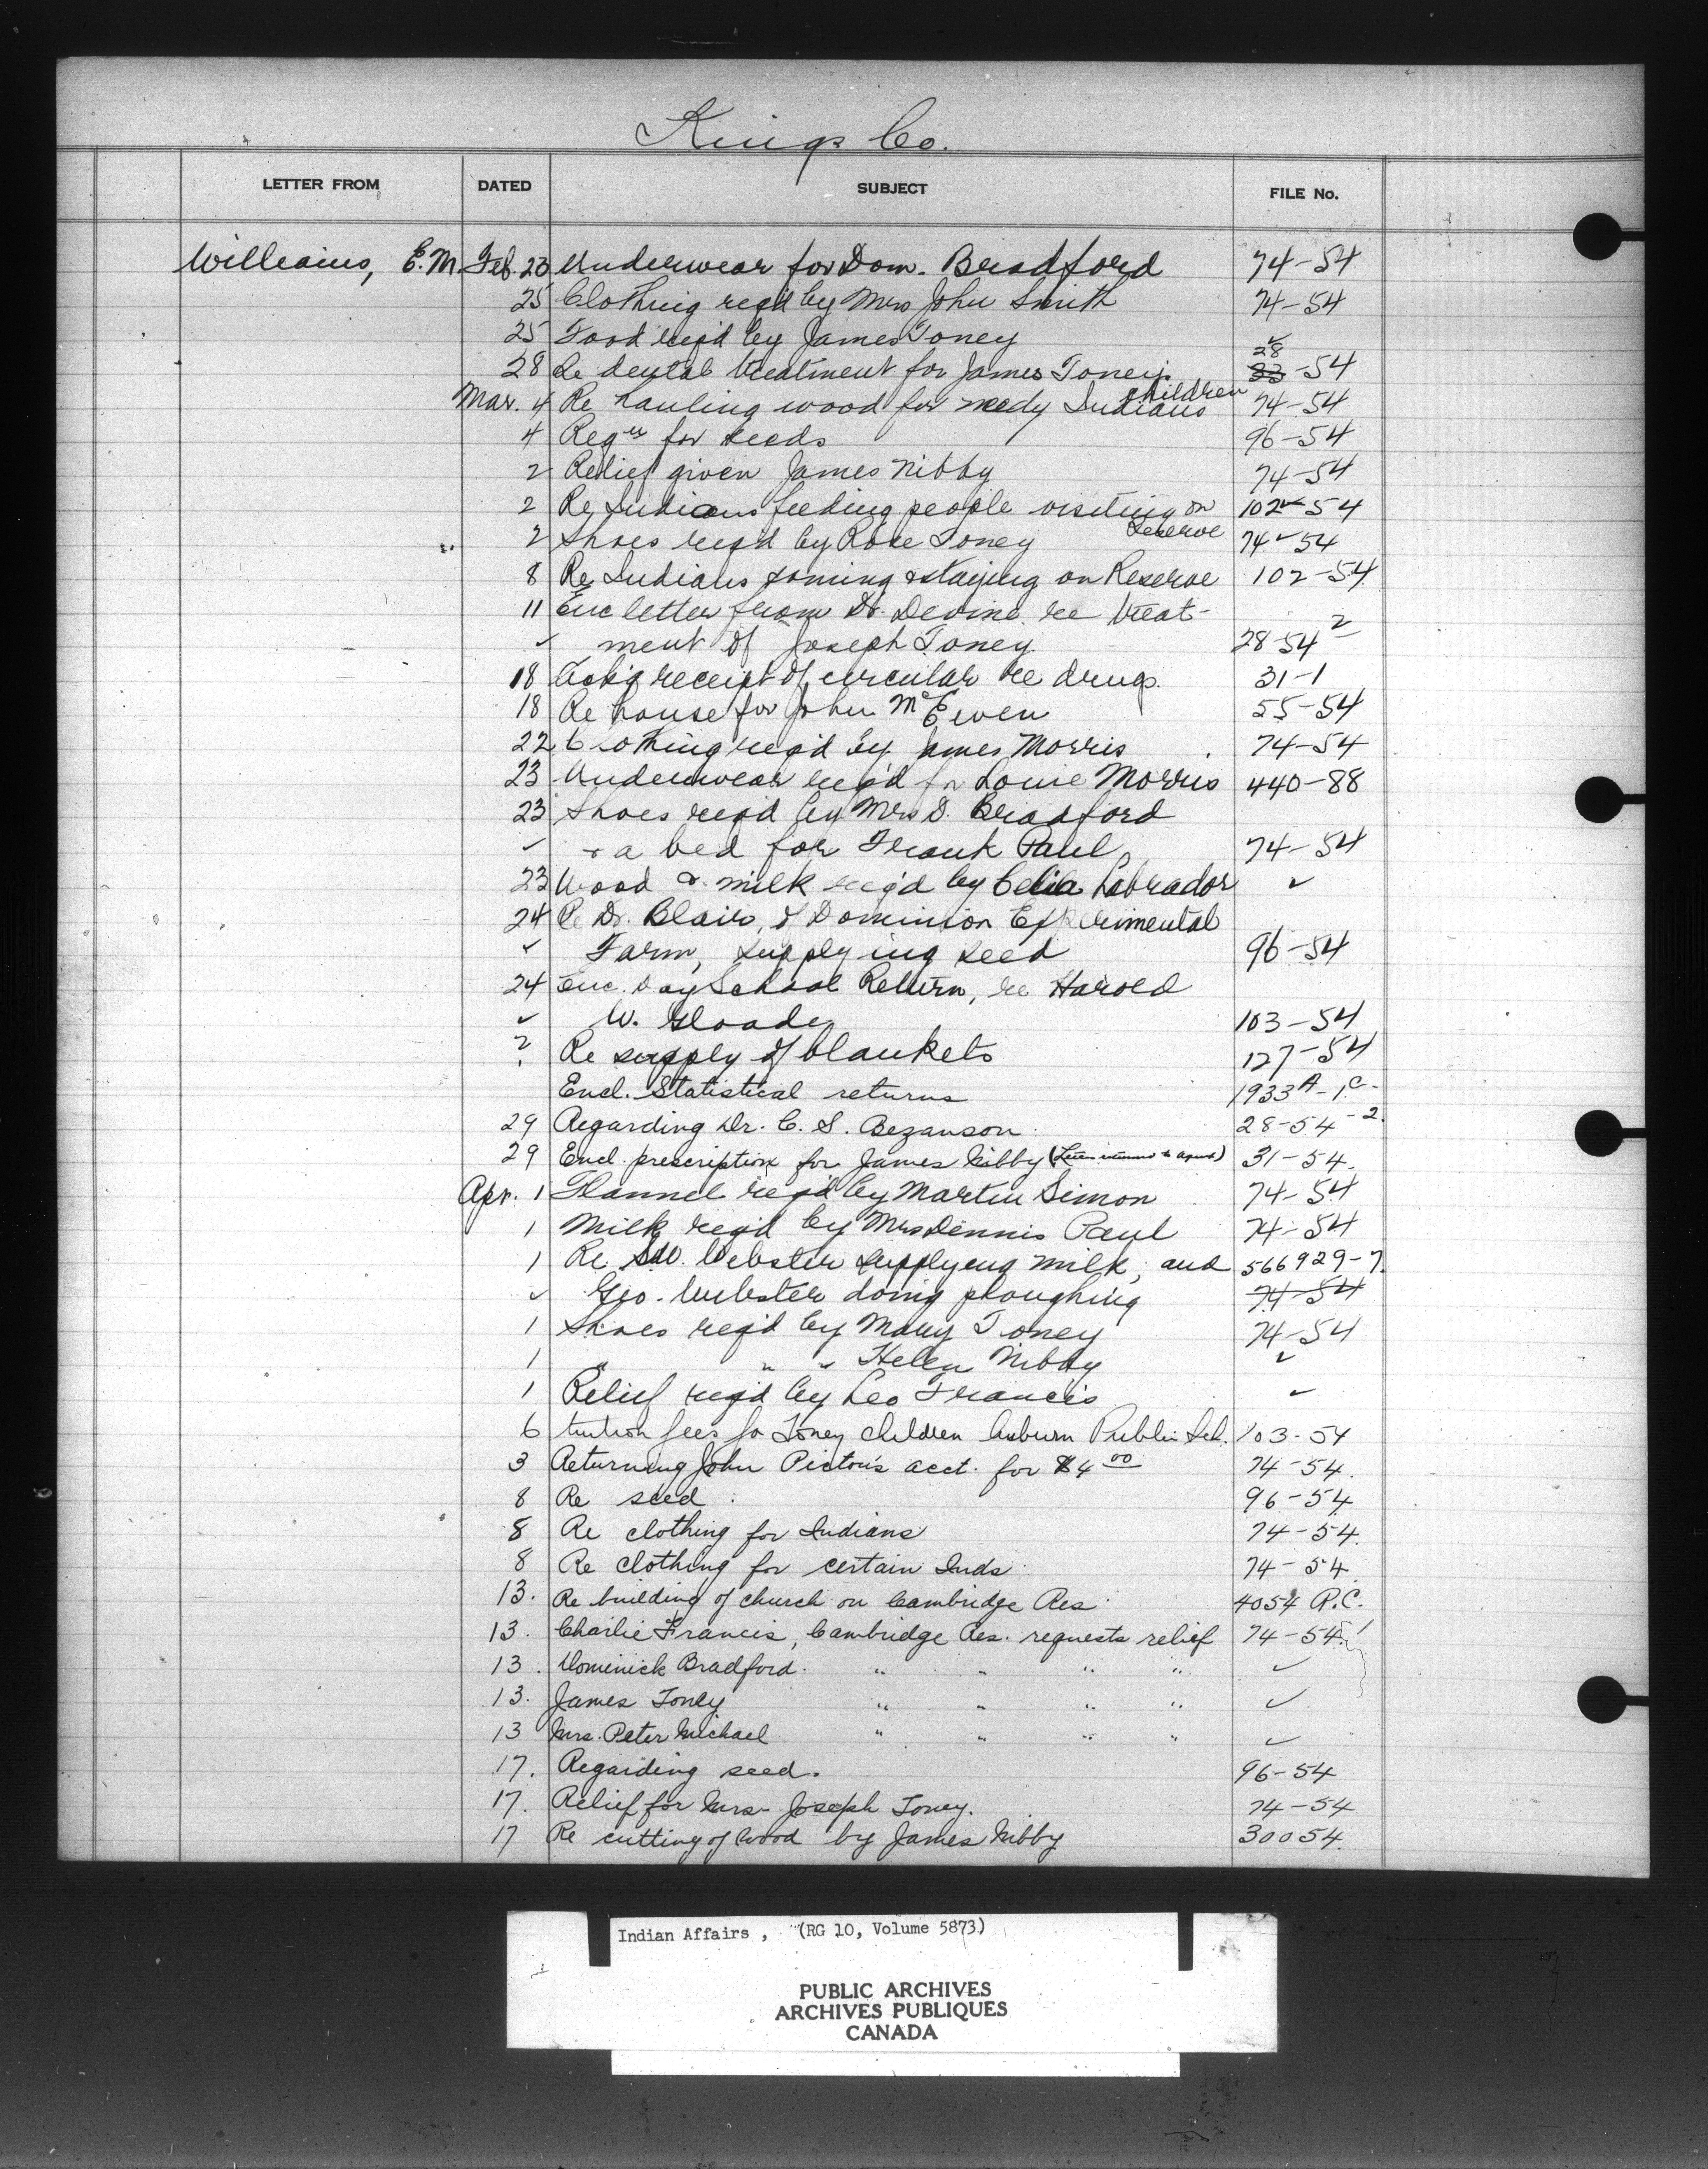 Kings Co.
LETTER FROM DATED SUBJECT FILE No.
Williams, E.M. Feb. 23 Underwear for Dom. Bradford 74-54
25 Clothing req'd by Mrs John Smith 74-54
25 Food req'd by James Toney ✓
28 Re dental treatment for James Toney's children 28 33-54
Mar. 4 Re hauling wood for needy Indians 74-54
4 Reqn for seeds 96-54
2 Relief given James Nibby 74-54
2 Re Indians feeding people visiting on Reserve 102-54
2 Shoes req'd by Rose Toney 74-54
8 Re Indians coming & staying on Reserve 102-54
11 Enc letter from Dr. Devine re treat-
✓ ment of Joseph Toney 28-54-2
18 Ackg receipt of circular re drugs. 31-1
18 Re house for John McEwen 55-54
22 Clothing req'd by James Morris 74-54
23 Underwear req'd for Louie Morris 440-88
23 Shoes req'd by Mrs D. Bradford
✓ & a bed for Frank Paul 74-54
23 Wood & milk req'd by Celia Labrador ✓
24 Re Dr. Blair, of Dominion Experimental
✓ Farm, supplying seed 96-54
24 Enc. Day School Return, re Harold
✓ W. Gloade 103-54
? Re supply of blankets 127-54
Encl. Statistical returns 1933A-1.C.
29 Regarding Dr. C. S. Bezanson. 28-54-2.
29 Encl. prescription for James Nibby (Letter returned to agent) 31-54.
Apr. 1 Flannel req'd by Martin Simon 74-54
1 Milk req'd by Mrs Dennis Paul 74-54
1 Re S.W. Webster supplying milk, and 566929-7.
✓ Geo. Webster doing ploughing 74-54
1 Shoes req'd by Mary Toney 74-54
1 " " " Helen Nibby ✓
1 Relief req'd by Leo Francis ✓
6 tuition fees for Toney children Auburn Public Sch. 103-54
3 Returning John Picton's acct. for $4 00 74-54.
8 Re seed. 96-54
8 Re clothing for Indians 74-54.
8 Re clothing for certain Inds. 74-54
13. Re building of church on Cambridge Res. 4054 R.C.
13. Charlie Francis, Cambridge Res. requests relief 74-54.
13. Dominick Bradford. " " " " ✓
13. James Toney " " " " ✓
13 Mrs. Peter Michael " " " " ✓
17. Regarding seed. 96-54
17. Relief for Mrs. Joseph Toney. 74-54
17 Re cutting of wood by James Nibby 30054.
Indian Affairs, (RG 10, Volume 5873)
PUBLIC ARCHIVES
ARCHIVES PUBLIQUES
CANADA